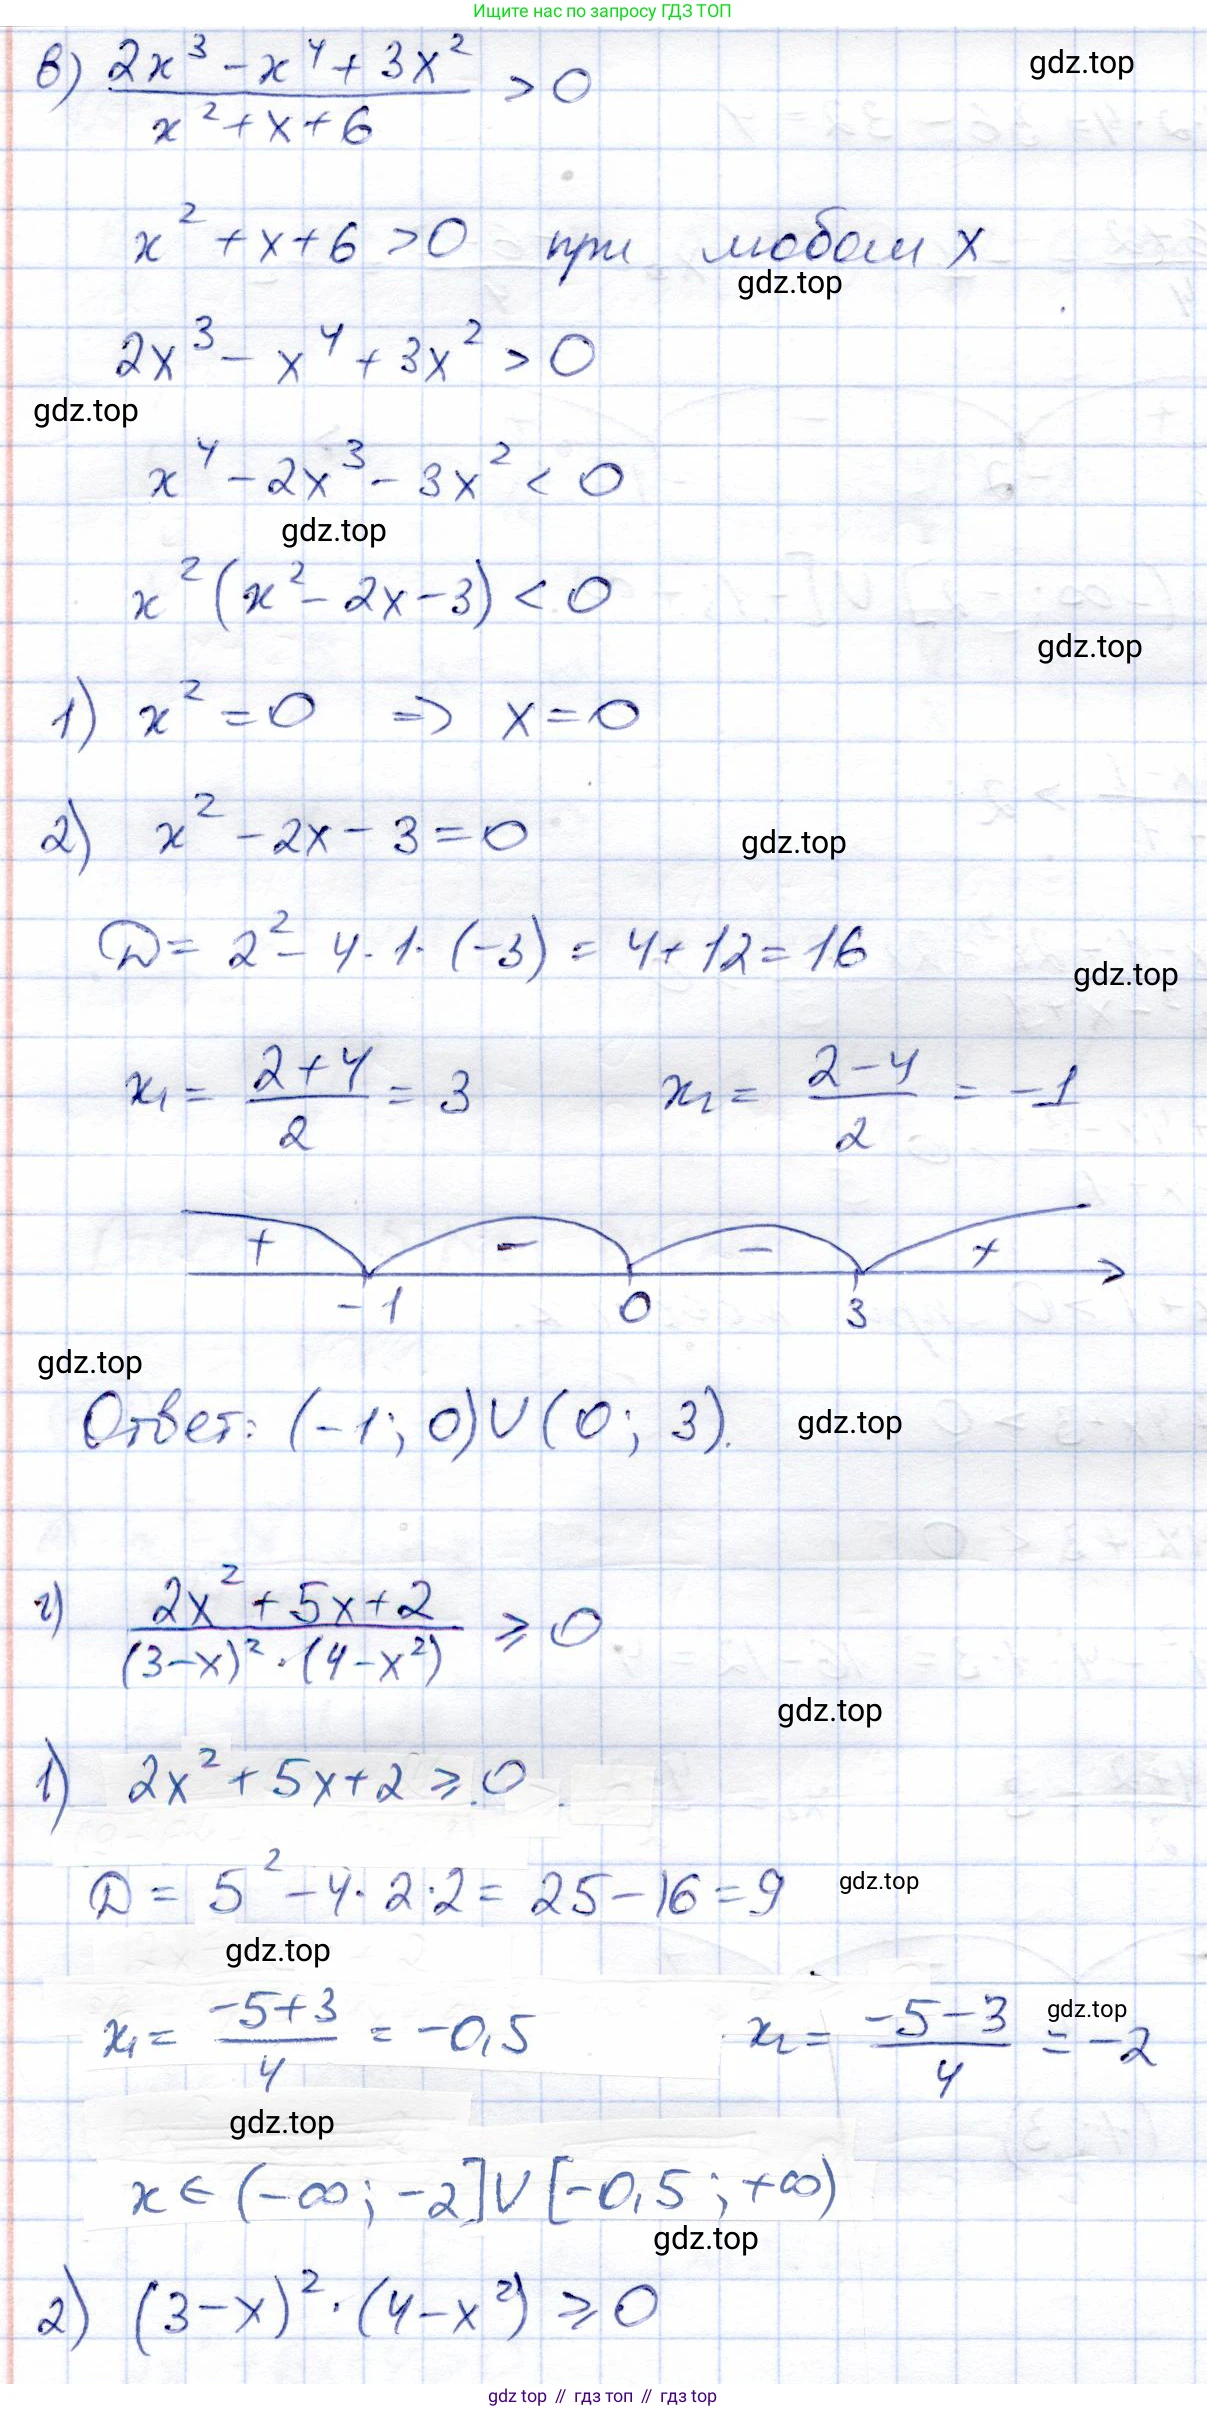 Ищите нас по запросу ГДЗ ТОП
в) (2x³ - x⁴ + 3x²)/(x² + x + 6) > 0
gdz.top
x² + x + 6 > 0 при любом x
gdz.top
2x³ - x⁴ + 3x² > 0
gdz.top
x⁴ - 2x³ - 3x² < 0
gdz.top
x² (x² - 2x - 3) < 0
gdz.top
1) x² = 0 => x = 0
2) x² - 2x - 3 = 0
gdz.top
D = 2² - 4 · 1 · (-3) = 4 + 12 = 16
gdz.top
x₁ = (2 + 4)/2 = 3 x₂ = (2 - 4)/2 = -1
+ - - +
-1 0 3
gdz.top
Ответ: (-1; 0) ∪ (0; 3).
gdz.top
г) (2x² + 5x + 2)/((3 - x)² · (4 - x²)) ≥ 0
gdz.top
1) 2x² + 5x + 2 ≥ 0
D = 5² - 4 · 2 · 2 = 25 - 16 = 9
gdz.top
gdz.top
x₁ = (-5 + 3)/4 = -0,5 x₂ = (-5 - 3)/4 = -2
gdz.top
gdz.top
x ∈ (-∞; -2] ∪ [-0,5; +∞)
gdz.top
2) (3 - x)² · (4 - x²) ≥ 0
gdz top // гдз топ // gdz top